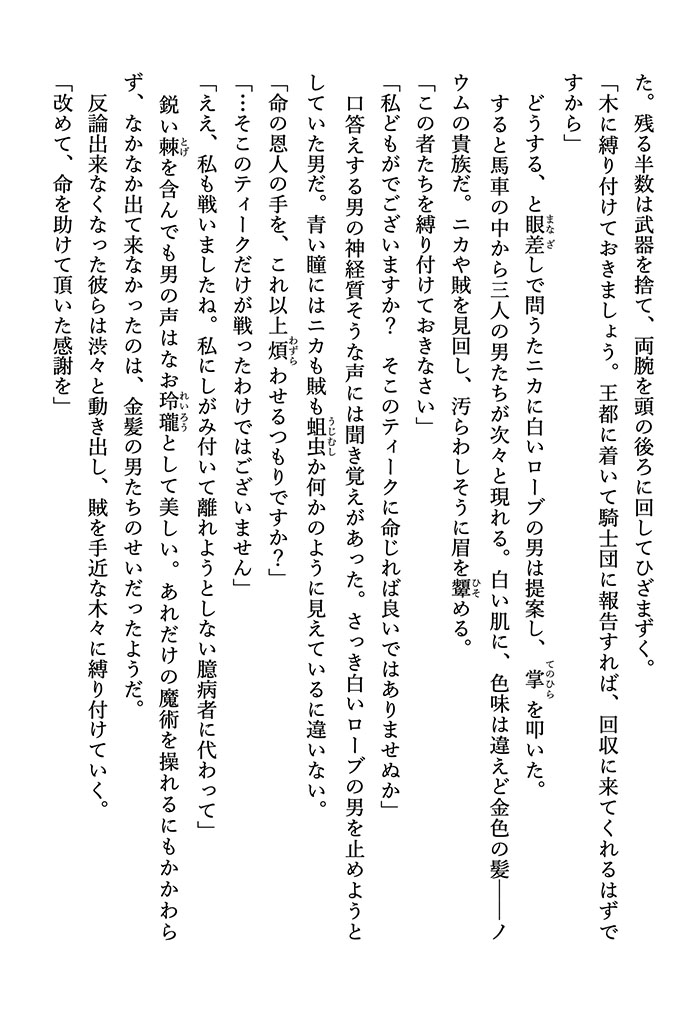 た。残る半数は武器を捨て、両腕を頭の後ろに回してひざまずく。
「木に縛り付けておきましょう。王都に着いて騎士団に報告すれば、回収に来てくれるはずで
すから」
どうする、と眼差しで問うたニカに白いローブの男は提案し、掌を叩いた。
すると馬車の中から三人の男たちが次々と現れる。白い肌に、色味は違えど金色の髪――ノ
ウムの貴族だ。ニカや賊を見回し、汚らわしそうに眉を顰める。
「この者たちを縛り付けておきなさい」
「私どもがでございますか？　そこのティークに命じれば良いではありませぬか」
口答えする男の神経質そうな声には聞き覚えがあった。さっき白いローブの男を止めようと
していた男だ。青い瞳にはニカも賊も蛆虫か何かのように見えているに違いない。
「命の恩人の手を、これ以上煩わせるつもりですか？」
「…そこのティークだけが戦ったわけではございません」
「ええ、私も戦いましたね。私にしがみ付いて離れようとしない臆病者に代わって」
鋭い棘を含んでも男の声はなお玲瓏として美しい。あれだけの魔術を操れるにもかかわら
ず、なかなか出て来なかったのは、金髪の男たちのせいだったようだ。
反論出来なくなった彼らは渋々と動き出し、賊を手近な木々に縛り付けていく。
「改めて、命を助けて頂いた感謝を」